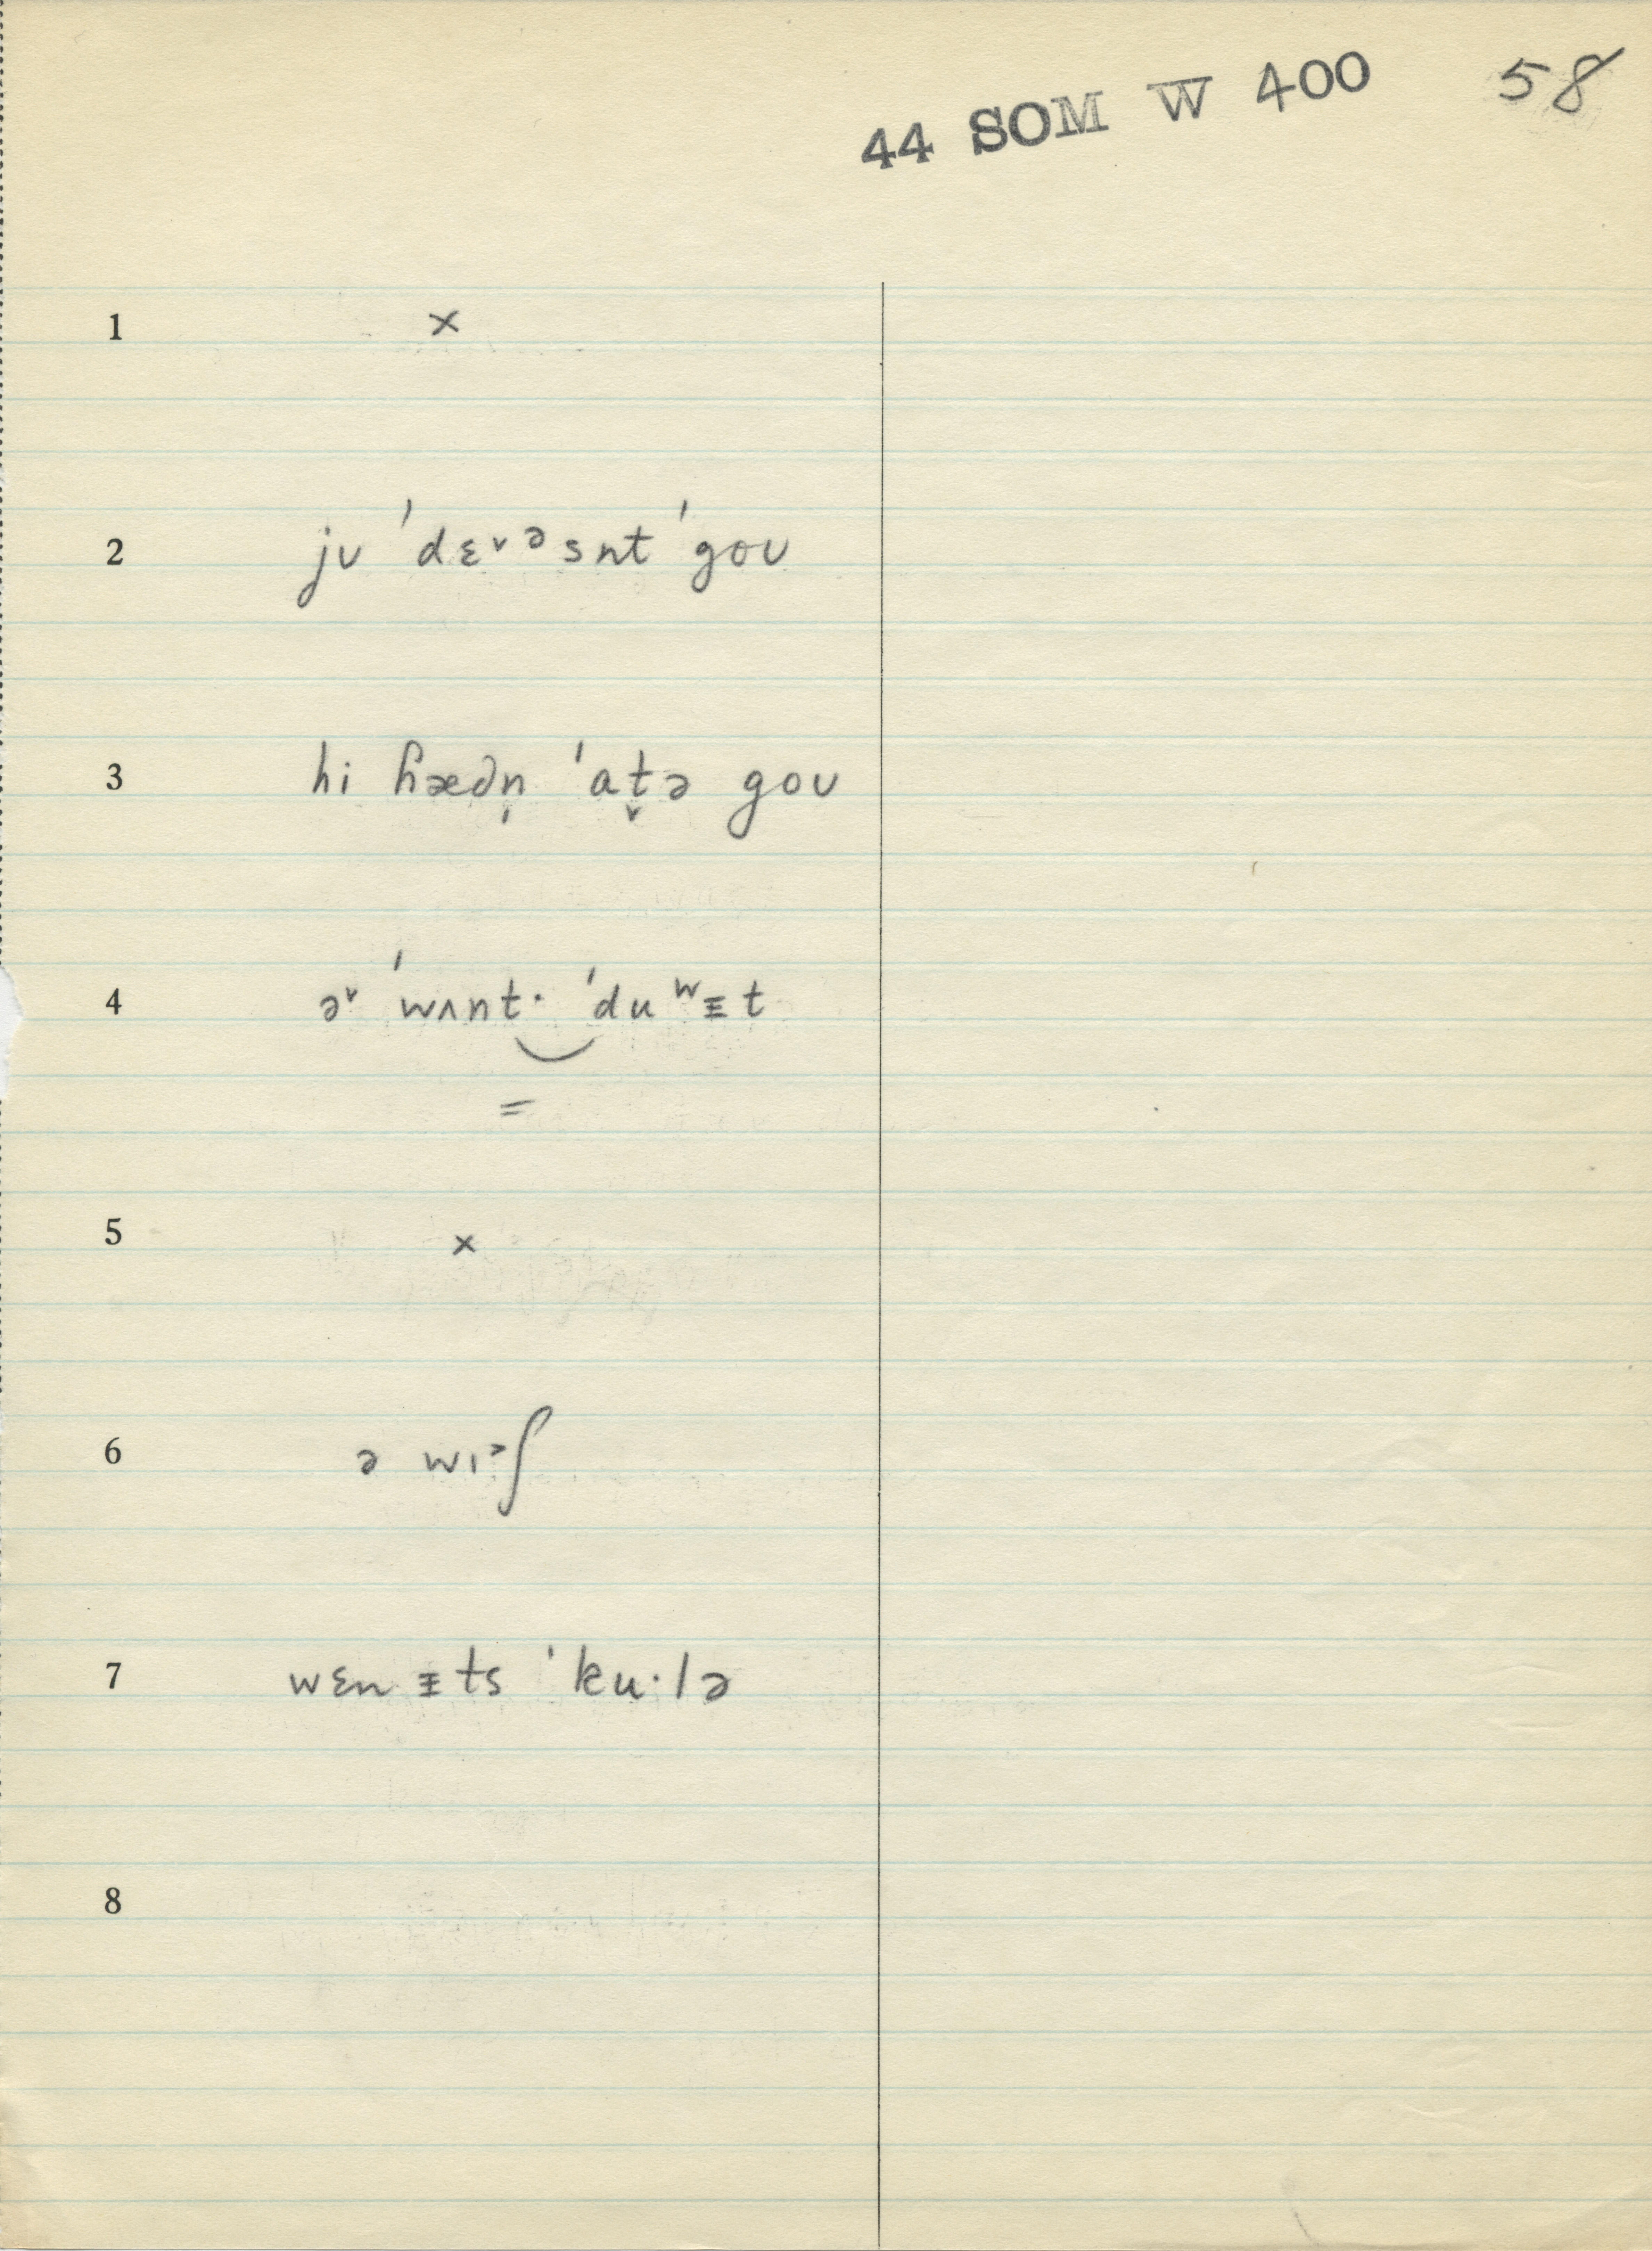 44 SOM W 400 58
1 ×
2 jʋ ˈdɛᵛᵊsnt ˈgoʋ
3 hi ɦæðn̩ ˈat̬ə goʋ
4 əᵛ ˈwʌnt· ˈduʷᵻt
=
5 ×
6 ə wɪᵊʃ
7 wɛn ᵻts ˈku·lə
8